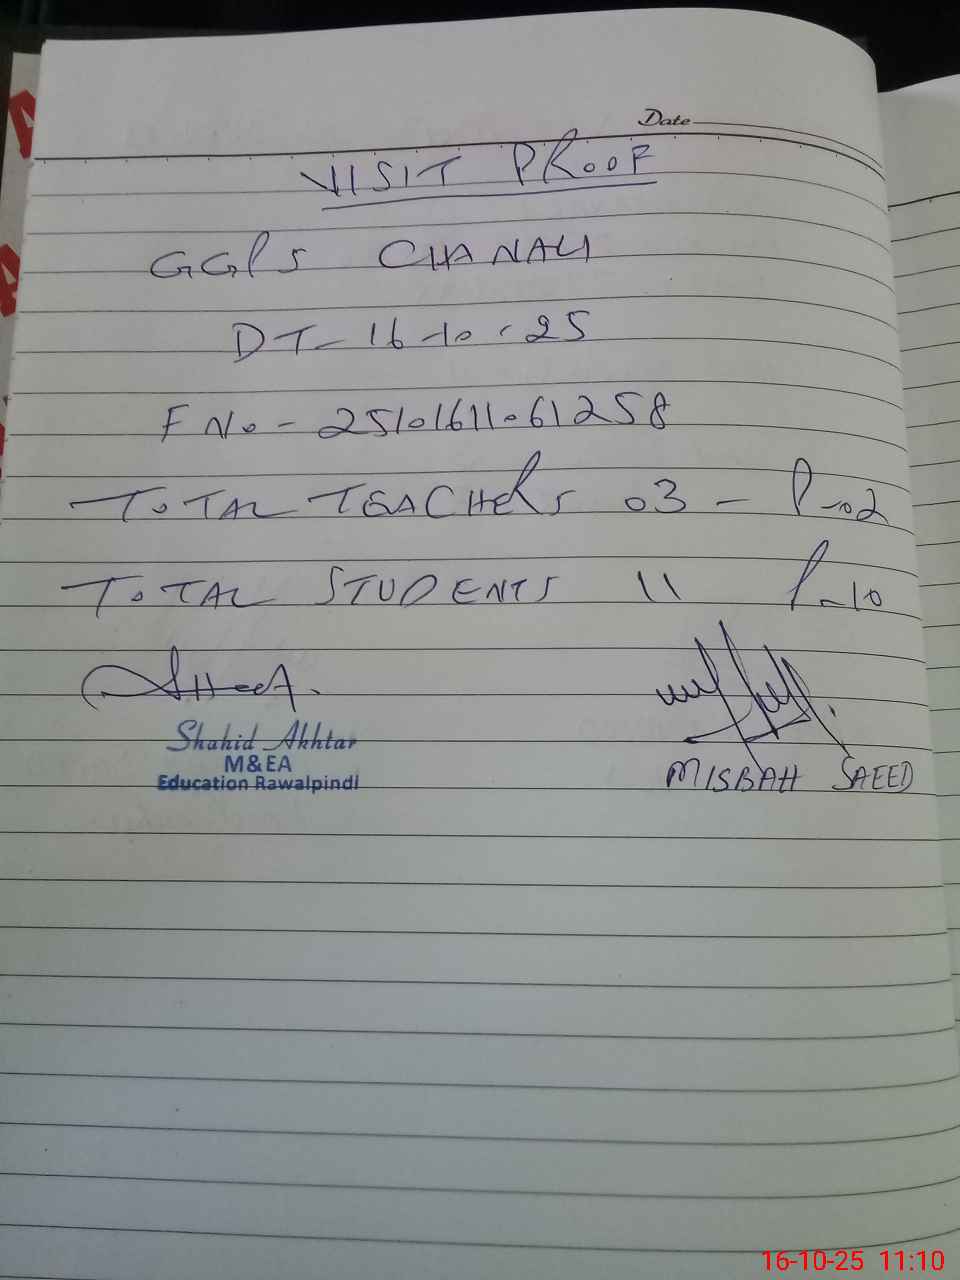 Date
VISIT PROOF
GGPS CHANALI
DT- 16-10-25
F No - 25101611061258
TOTAL TEACHERS 03 - P-02
TOTAL STUDENTS 11 P-10
Shahid Akhtar
M&EA
Education Rawalpindi
MISBAH SAEED
16-10-25 11:10